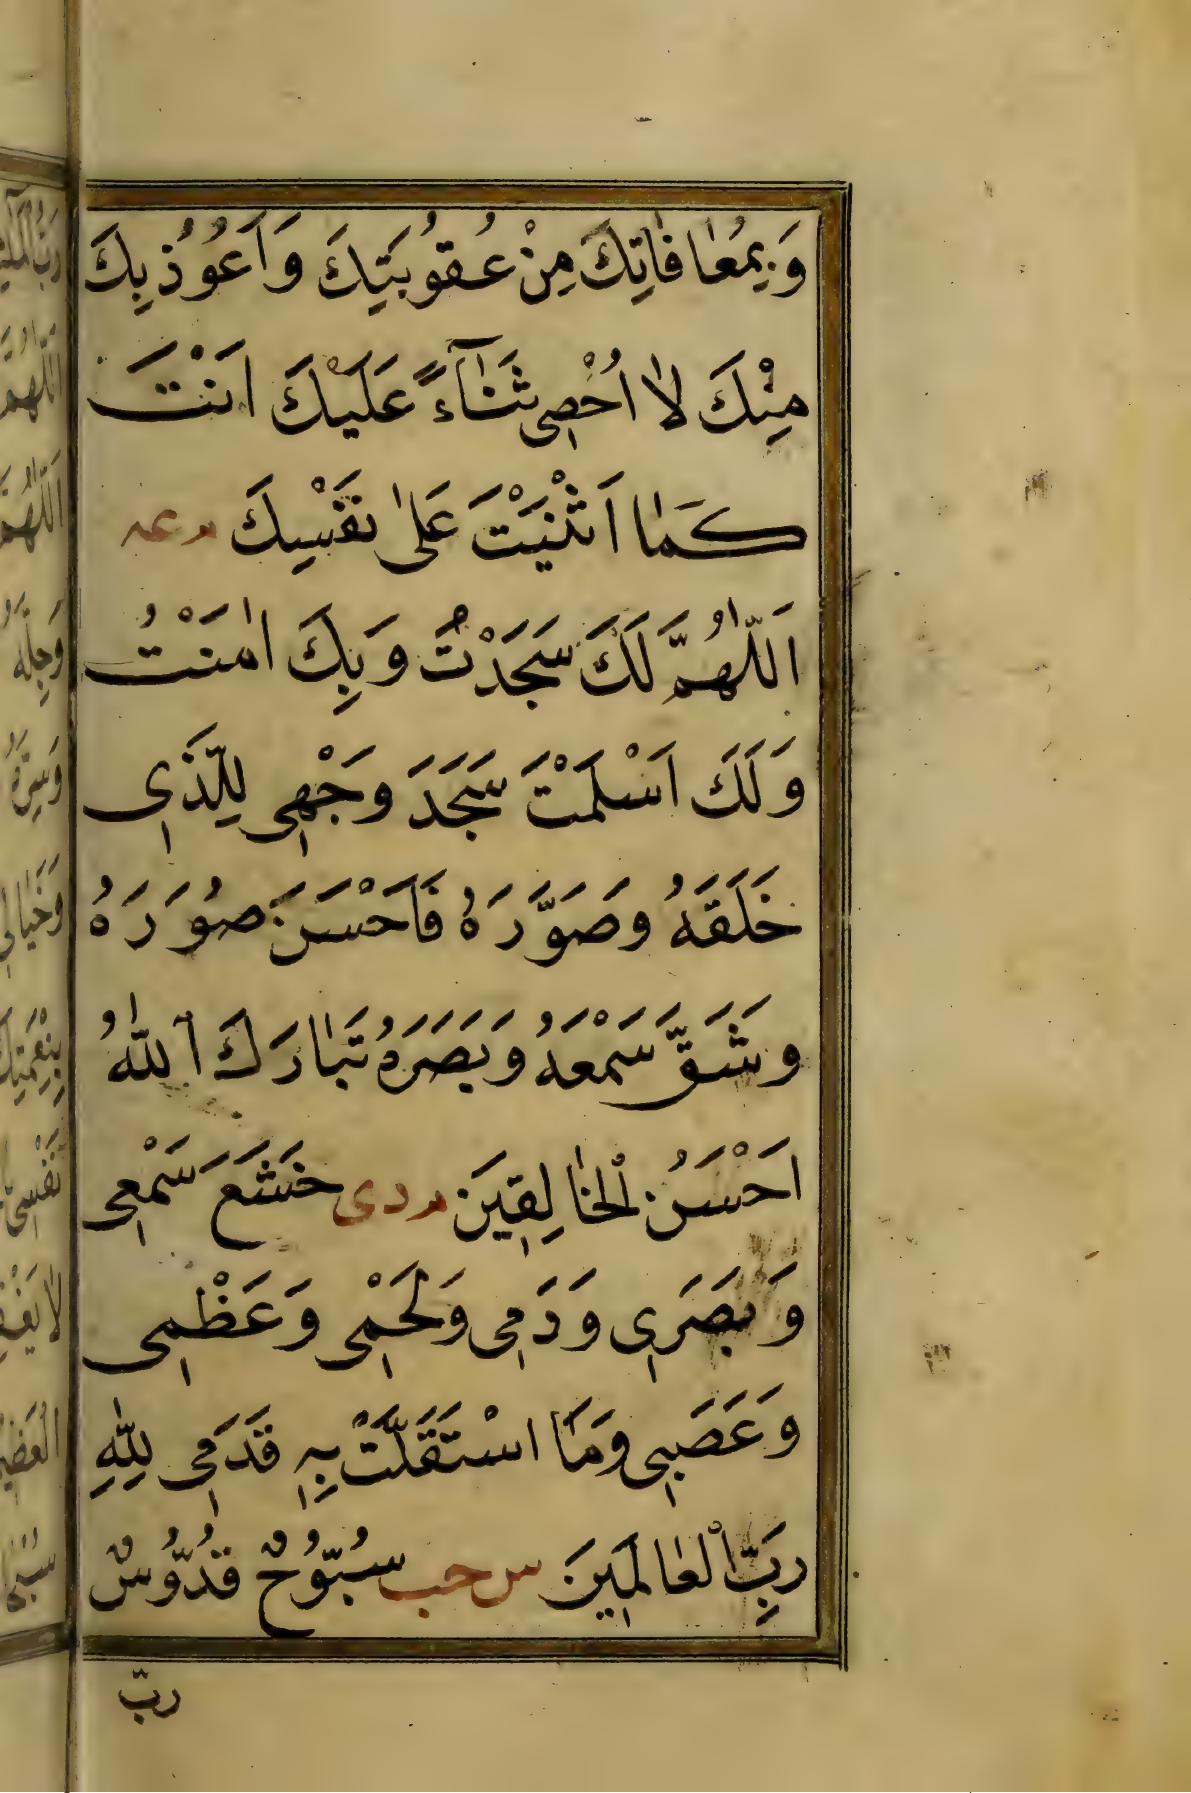 وَبِمُعَافَاتِكَ مِنْ عُقُوبَتِكَ وَاَعُوُذُ بِكَ
مِنْكَ لَا اُحْصِى ثَنَاءً عَلَيْكَ اَنْتَ
كَمَا اَثْنَيْتَ عَلٰى نَفْسِكَ م عه
اَللّٰهُمَّ لَكَ سَجَدْتُ وَبِكَ اٰمَنْتُ
وَلَكَ اَسْلَمْتُ سَجَدَ وَجْهِى لِلَّذِى
خَلَقَهُ وَصَوَّرَهُ فَاَحْسَنَ صُوَرَهُ
وَشَقَّ سَمْعَهُ وَبَصَرَهُ تَبَارَكَ اللّٰهُ
اَحْسَنُ الْخَالِقِينَ م د ى خَشَعَ سَمْعِى
وَبَصَرِى وَدَمِى وَلَحْمِى وَعَظْمِى
وَعَصَبِى وَمَا اسْتَقَلَّتْ بِهِ قَدَمِى لِلّٰهِ
رَبِّ الْعَالَمِينَ س حب سُبُّوحٌ قُدُّوسٌ
ربّ